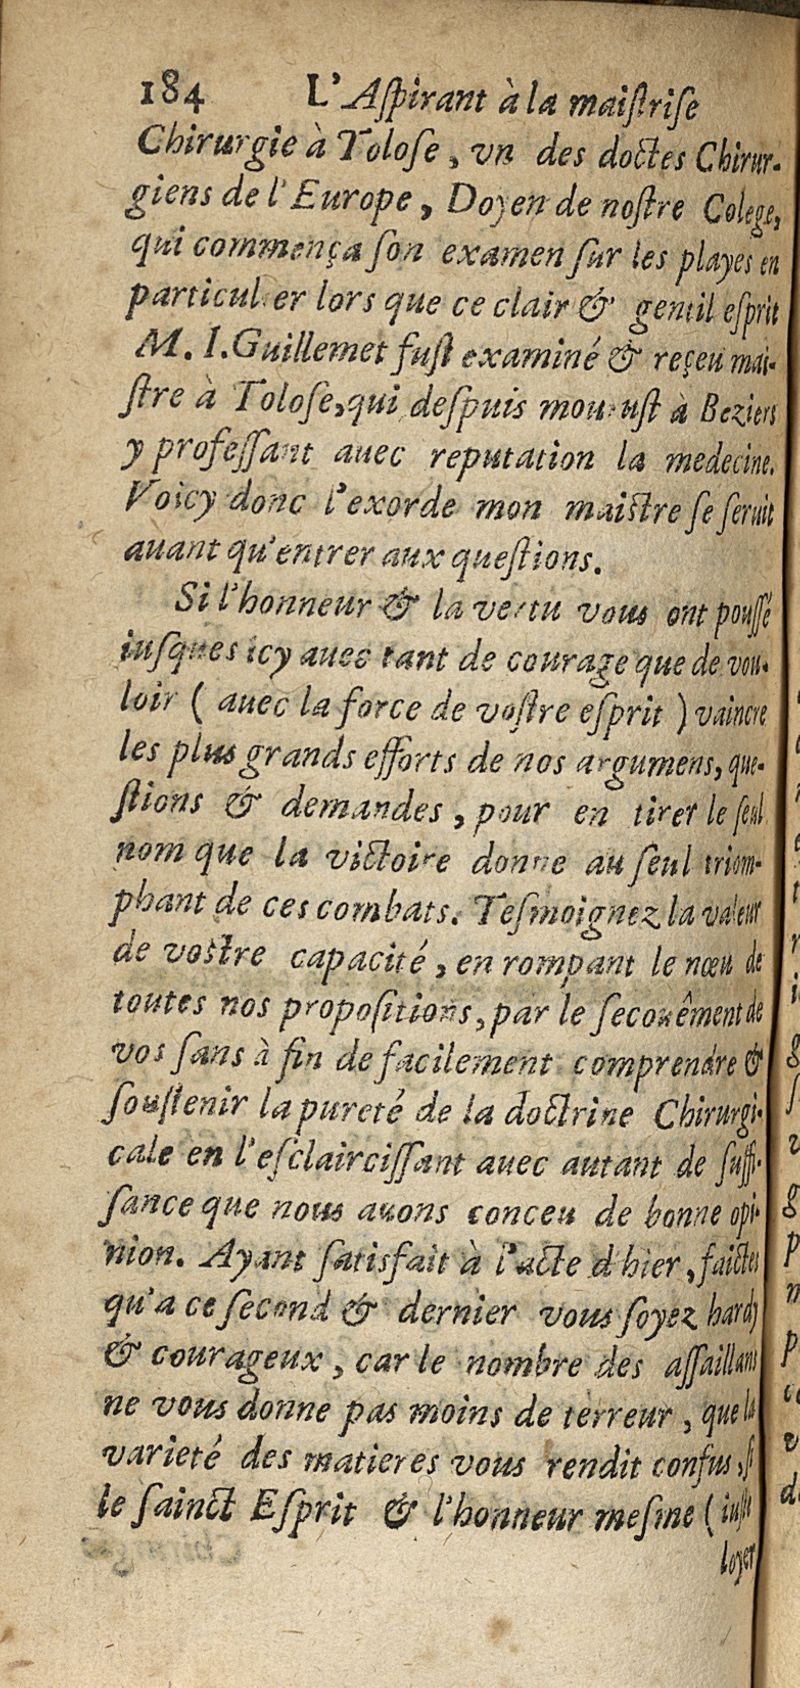 184 L'Aſpirant à la maiſtriſe
Chirurgie à Toloſe, vn des doctes Chirur-
giens de l'Europe, Doyen de noſtre Colege,
qui commença ſon examen ſur les playes en
particulier lors que ce clair & gentil eſprit
M. I. Guillemet fuſt examiné & reçeu mai-
ſtre à Toloſe, qui deſpuis mouruſt à Beziers
y profeſſant auec reputation la medecine.
Voicy donc l'exorde mon maiſtre ſe ſeruit
auant qu'entrer aux queſtions.
Si l'honneur & la vertu vous ont pouſſé
iuſques icy auec tant de courage que de vou-
loir ( auec la force de voſtre eſprit ) vaincre
les plus grands efforts de nos argumens, que-
ſtions & demandes, pour en tirer le ſeul
nom que la victoire donne au ſeul triom-
phant de ces combats. Teſmoignez la valeur
de voſtre capacité, en rompant le nœu de
toutes nos propoſitions, par le ſecouêment de
vos ſans à fin de facilement comprendre &
ſouſtenir la pureté de la doctrine Chirurgi-
cale en l'eſclairciſſant auec autant de ſuffi-
ſance que nous auons conceu de bonne opi-
nion. Ayant ſatisfait à l'acte d'hier, faictes
qu'a ce ſecond & dernier vous ſoyez hardy
& courageux, car le nombre des aſſaillans
ne vous donne pas moins de terreur, que la
varieté des matieres vous rendit confus, ſi
le ſainct Eſprit & l'honneur meſme ( iuſte
loyer